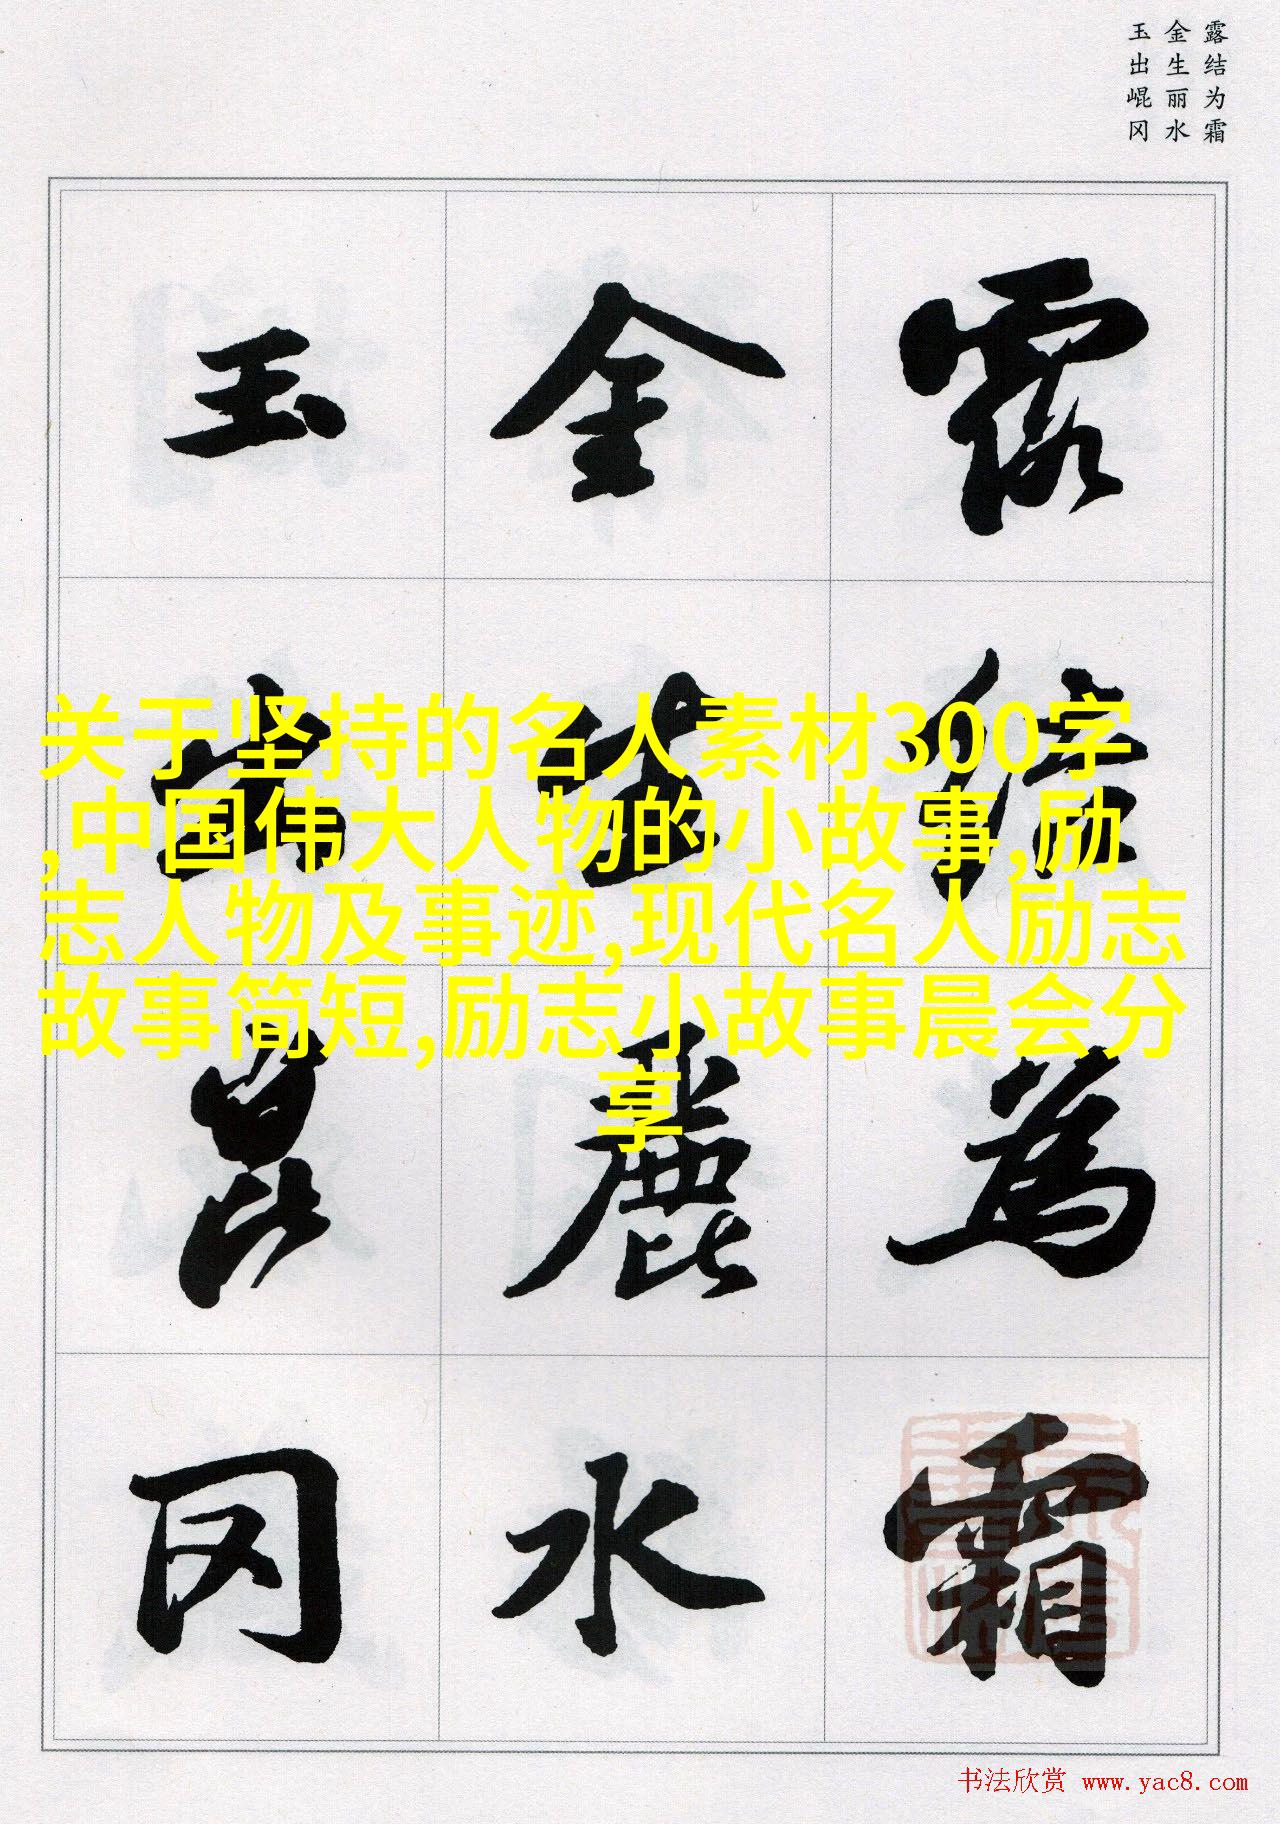 露结为霜
金生丽水
玉出崐冈
露结为霜
金生麗水
玉出崑冈
关于坚持的名人素材300字
,中国伟大人物的小故事,励
志人物及事迹,现代名人励志
故事简短,励志小故事晨会分
享
书法欣赏 www.yac8.com